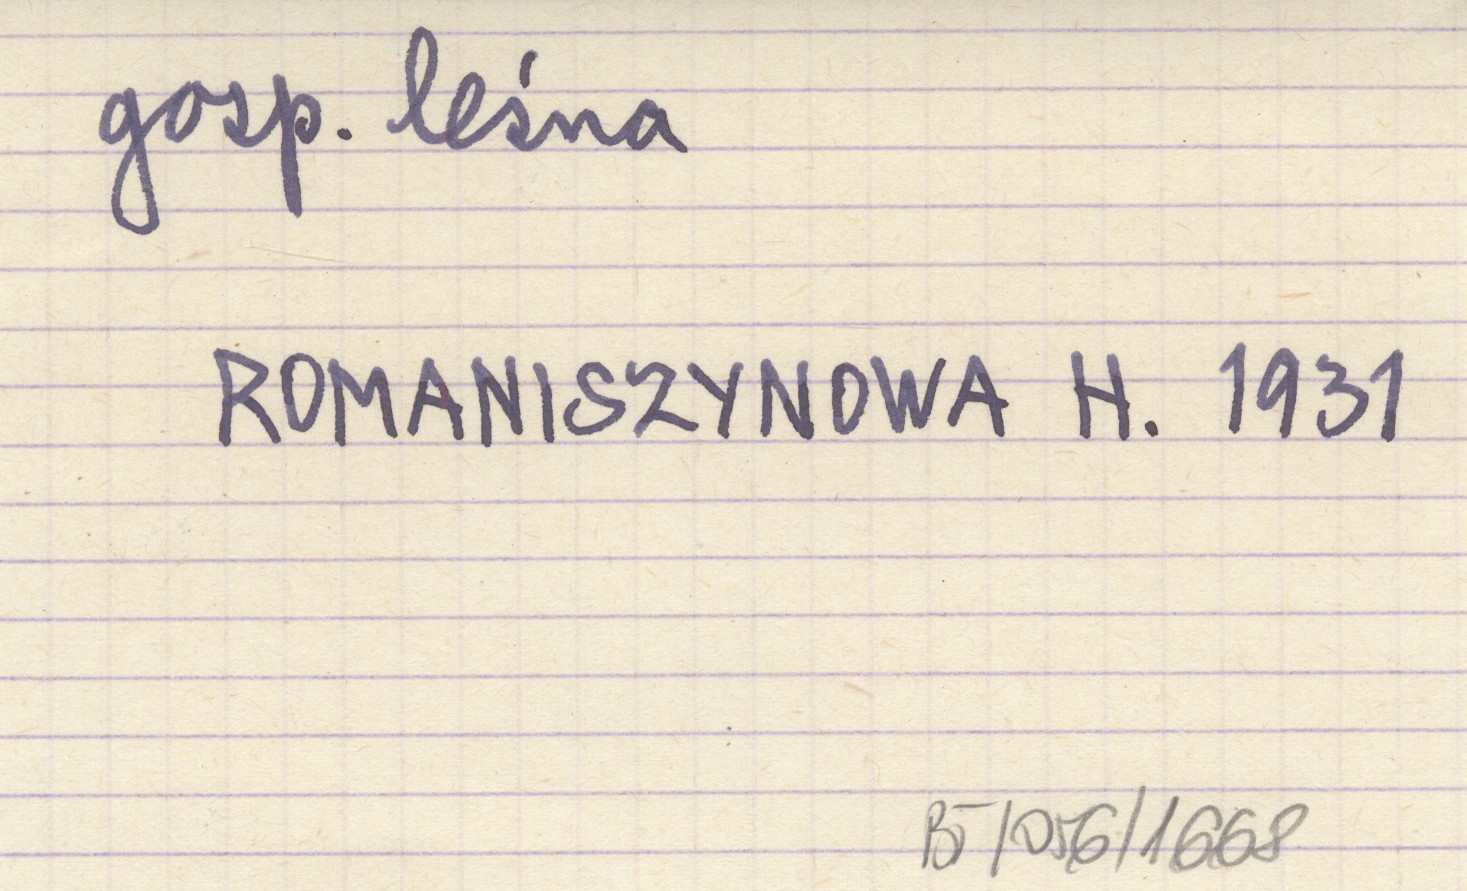 gosp. leśna
ROMANISZYNOWA H. 1931
/1668